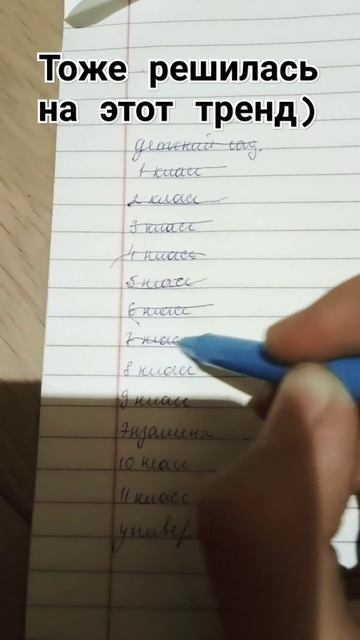 Тоже решилась
на этот тренд)
детский сад.
1 класс
2 класс
3 класс
4 класс
5 класс
6 класс
7 класс
8 класс
9 класс
Экзамены
10 класс
11 класс
универ